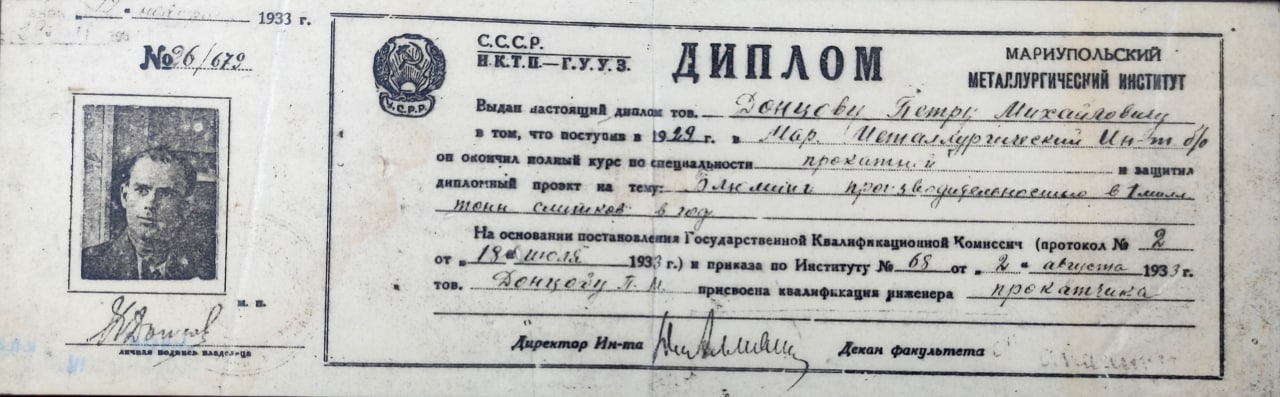 1933 г.
№ 26/679
м. п.
личная подпись владельца
У.С.Р.Р.
С.С.С.Р.
Н.К.Т.П.—Г.У.У.З.
ДИПЛОМ
МАРИУПОЛЬСКИЙ
МЕТАЛЛУРГИЧЕСКИЙ ИНСТИТУТ
Выдан настоящий диплом тов. Донцову Петру Михайловичу
в том, что поступив в 1929 г. в Мар. Металлургический Ин-т б/о
он окончил полный курс по специальности прокатной и защитил
дипломный проэкт на тему: Блюминг производительностью в 1 милл.
тонн слитков в год
На основании постановления Государственной Квалификационной Комиссии (протокол № 2
от „18“ июля 1933 г.) и приказа по Институту № 68 от „2“ августа 1933 г.
тов. Донцову П. М. присвоена квалификация инженера прокатчика
Директор Ин-та Декан факультета